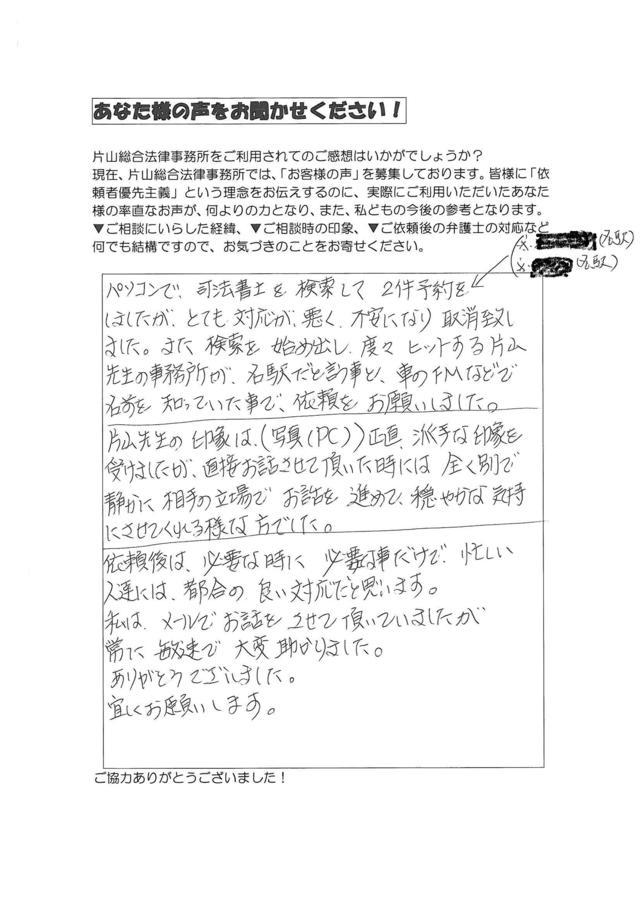 あなた様の声をお聞かせください！
片山総合法律事務所をご利用されてのご感想はいかがでしょうか？
現在、片山総合法律事務所では、「お客様の声」を募集しております。皆様に「依
頼者優先主義」という理念をお伝えするのに、実際にご利用いただいたあなた
様の率直なお声が、何よりの力となり、また、私どもの今後の参考となります。
▼ご相談にいらした経緯、▼ご相談時の印象、▼ご依頼後の弁護士の対応など
何でも結構ですので、お気づきのことをお寄せください。
(名駅)
(名駅)
パソコンで、司法書士を検索して 2件予約を
しましたが、とても対応が、悪く、不安になり取消致し
ました。また検索を始め出し、度々ヒットする片山
先生の事務所が、名駅だと記事と、車のFMなどで
名前を知っていた事で、依頼をお願いしました。
片山先生の印象は、(写真(PC))正直、派手な印象を
受けましたが、直接お話させて頂いた時には全く別で
静かに相手の立場でお話を進めて、穏やかな気持
にさせてくれる様な方でした。
依頼後は、必要な時に必要な事だけで、忙しい
人達には、都合の良い対応だと思います。
私は、メールでお話をさせて頂いていましたが
常に敏速で大変助かりました。
ありがとうございました。
宜しくお願いします。
ご協力ありがとうございました！